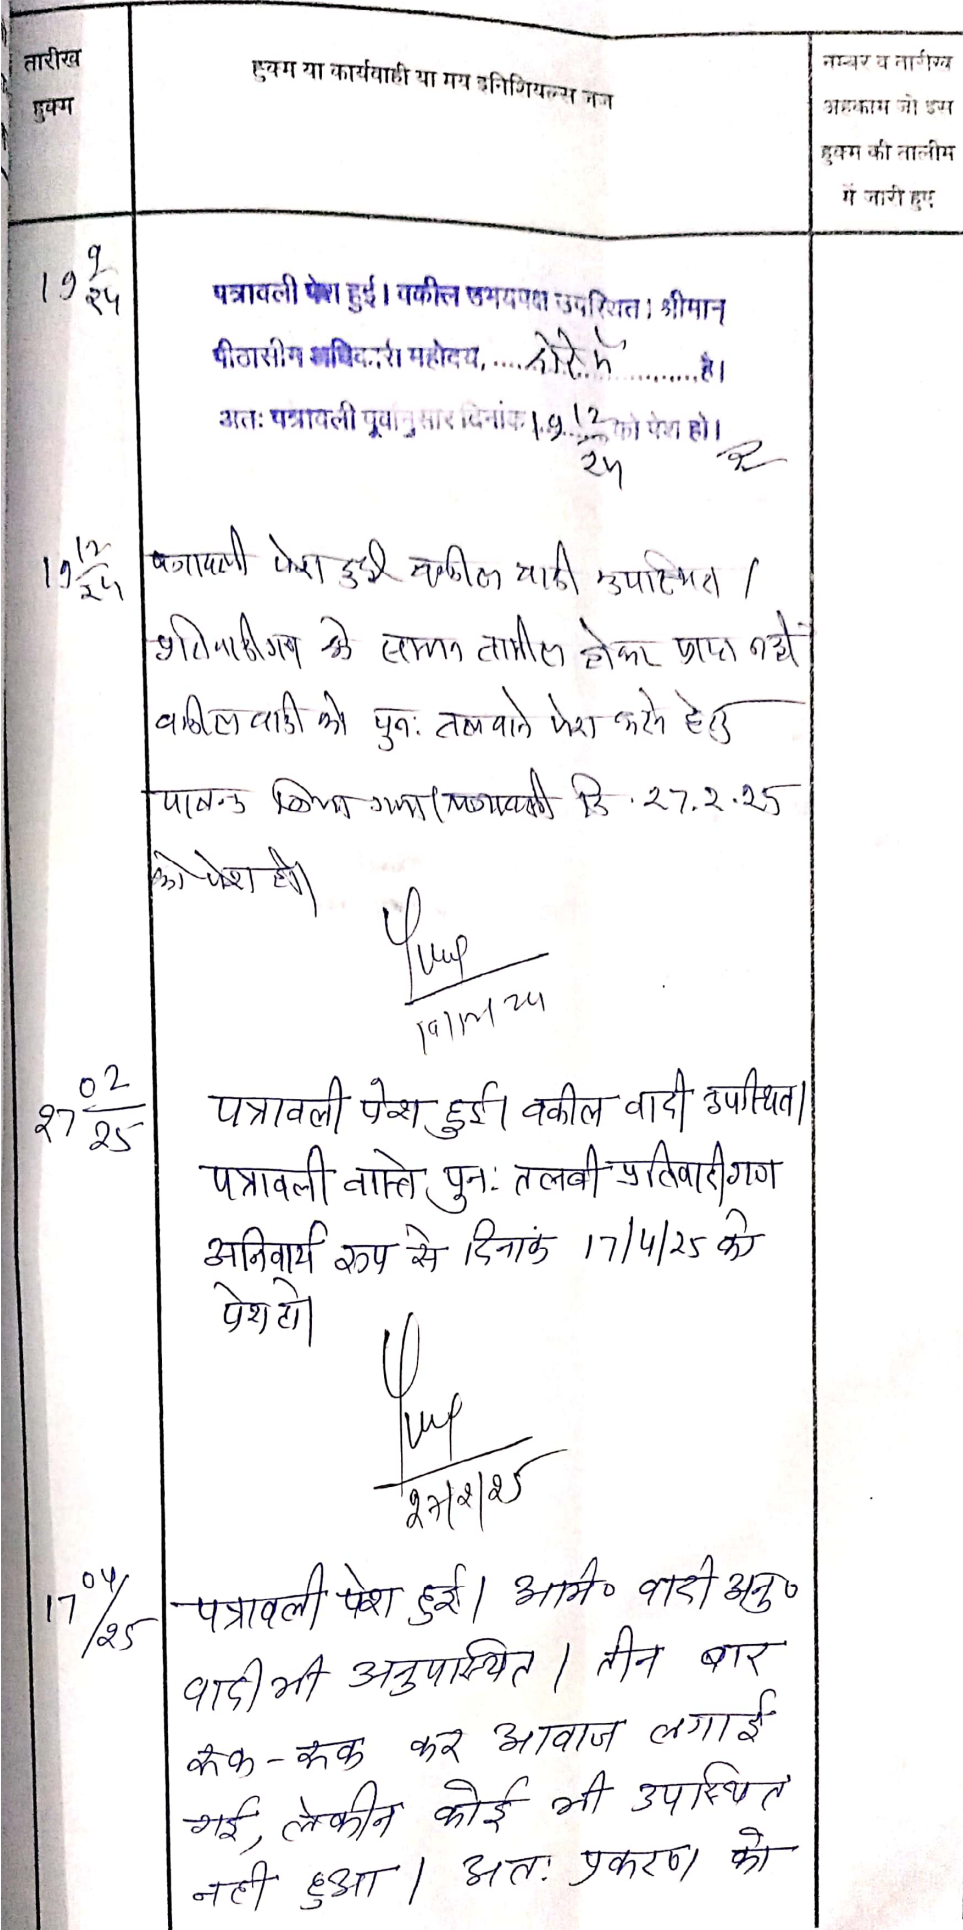 तारीख
हुक्म
हुक्म या कार्यवाही या मय इनिशियल्स जज
नम्बर व तारीख
अहकाम जो इस
हुक्म की तालीम
में जारी हुए
19 9/24
पत्रावली पेश हुई। वकील उभयपक्ष उपस्थित। श्रीमान्
पीठासीन अधिकारी महोदय, ....दौरे में..........है।
अतः पत्रावली पूर्वानुसार दिनांक 19 12/24 को पेश हो।
19 12/24
पत्रावली पेश हुई वकील वादी उपस्थित।
प्रतिवादीगण के सम्मन तामील होकर प्राप्त नहीं
वकील वादी को पुनः तलवाने पेश करने हेतु
पाबन्द किया गया। पत्रावली दि. 27.2.25
को पेश हो।
19/12/24
27 02/25
पत्रावली पेश हुई। वकील वादी उपस्थित।
पत्रावली वास्ते पुनः तलबी प्रतिवादीगण
अनिवार्य रूप से दिनांक 17/4/25 को
पेश हो।
27/2/25
17 04/25
पत्रावली पेश हुई। अभि० वादी अनु०
वादी भी अनुपस्थित। तीन बार
रूक-रूक कर आवाज लगाई
गई, लेकीन कोई भी उपस्थित
नही हुआ। अतः प्रकरण को